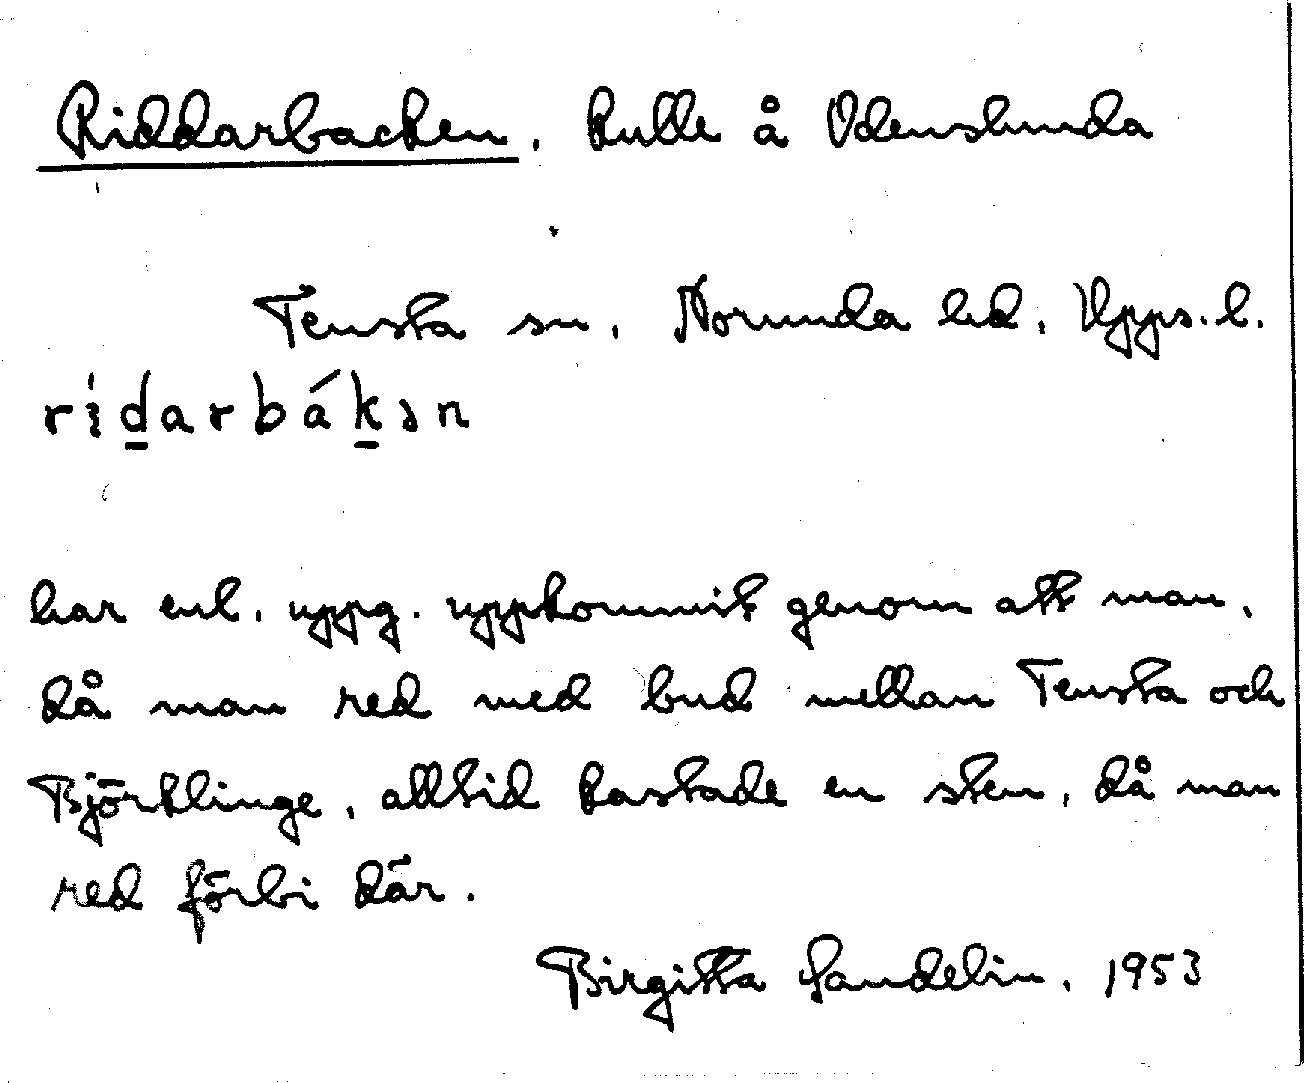 Riddarbacken, kulle å Odenslunda
Tensta sn, Norunda hd, Upps. l.
ri̇d̲arbák̲ən
har enl. uppg. uppkommit genom att man,
då man red med bud mellan Tensta och
Björklinge, alltid kastade en sten, då man
red förbi där.
Birgitta Sandelin, 1953